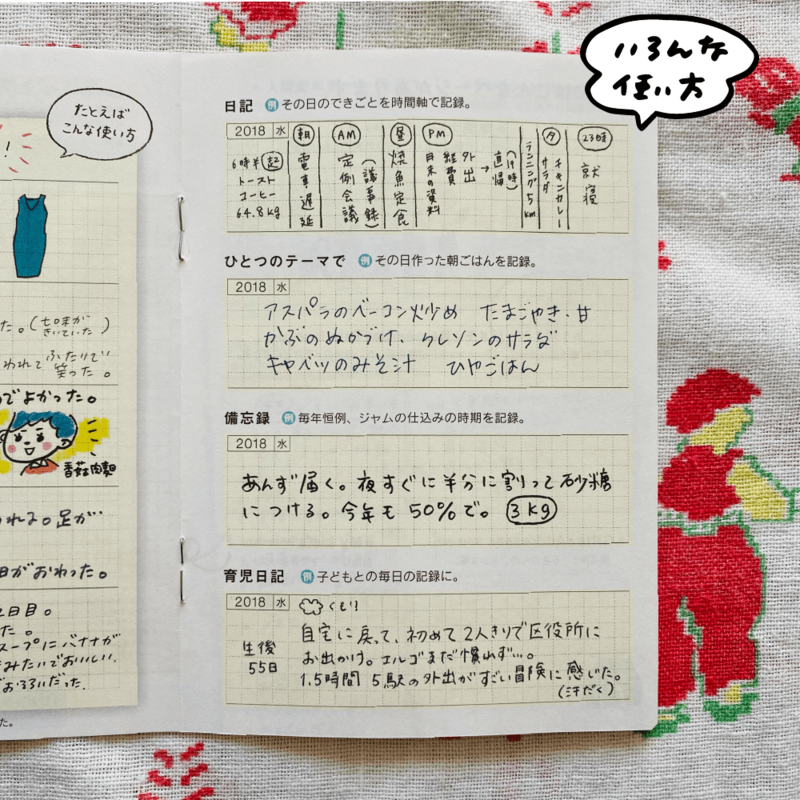 いろんな
使い方
たとえば
こんな使い方
！
た。（七味が
きいていた）
われて ふたりで
笑った。
でよかった。
香菇肉麵
われる。足が
日がおわった。
2日目。
た。
スープにバナナが
きみたいでおいしい。
おそろいだった。
た。
日記 例 その日のできごとを時間軸で記録。
2018 水
6時半 起
トースト
コーヒー
64.8kg
朝
電車遅延
AM
定例会議
（議事録）
昼
焼魚定食
PM
月末の資料
経費
外出
→
直帰
（17時）
ランニング5km
夕
サラダ
チキンカレー
23時
就寝
ひとつのテーマで 例 その日作った朝ごはんを記録。
2018 水
アスパラのベーコン炒め たまごやき・甘
かぶのぬかづけ、クレソンのサラダ
キャベツのみそ汁 ひやごはん
備忘録 例 毎年恒例、ジャムの仕込みの時期を記録。
2018 水
あんず届く。夜すぐに半分に割って砂糖
につける。今年も50%で。 3kg
育児日記 例 子どもとの毎日の記録に。
2018 水 くもり
生後
55日
自宅に戻って、初めて2人きりで区役所に
お出かけ。エルゴまだ慣れず…。
1.5時間 5駅の外出がすごい冒険に感じた。
（汗だく）